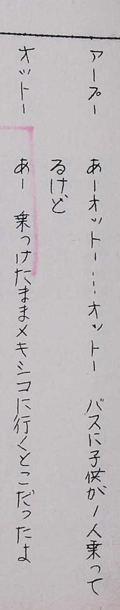 アープー　あーオットー…オットー　バスに子供が1人乗って
るけど
オットー　あー　乗っけたままメキシコに行くとこだったよ